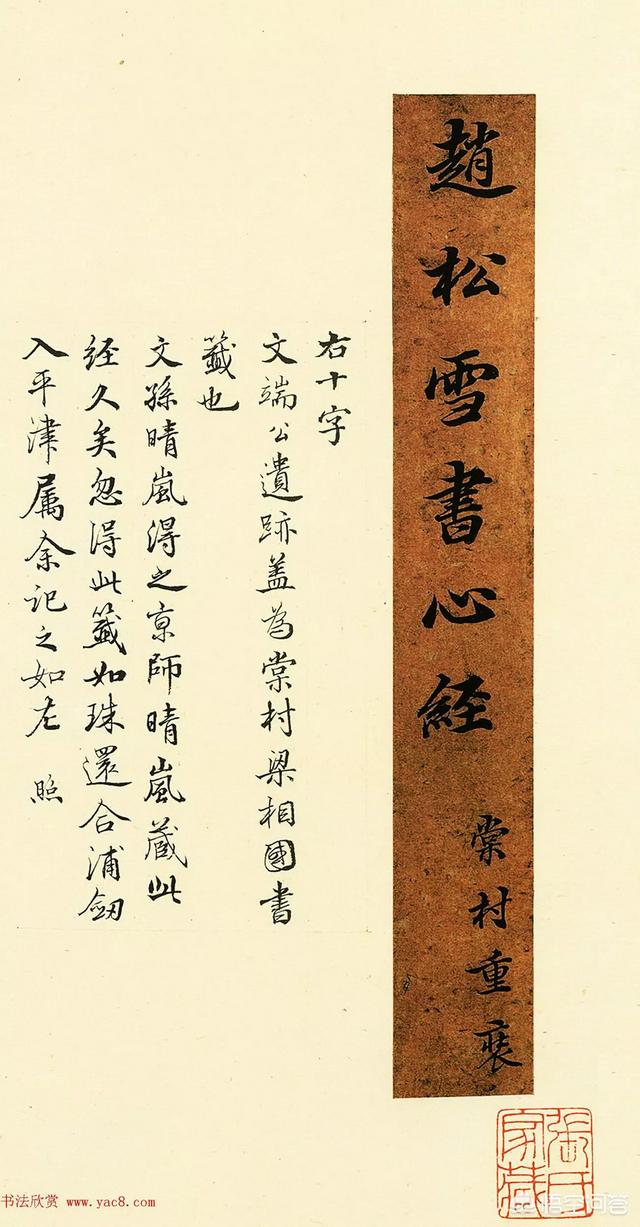 趙松雪書心經
棠村重裝
右十字
文端公遺跡蓋為棠村梁相國書
籤也
文孫晴嵐得之京師晴嵐藏此
经久矣忽得此籤如珠還合浦劔
入平津属余記之如左 照
張氏家藏
书法欣赏 www.yac8.com
悟空问答